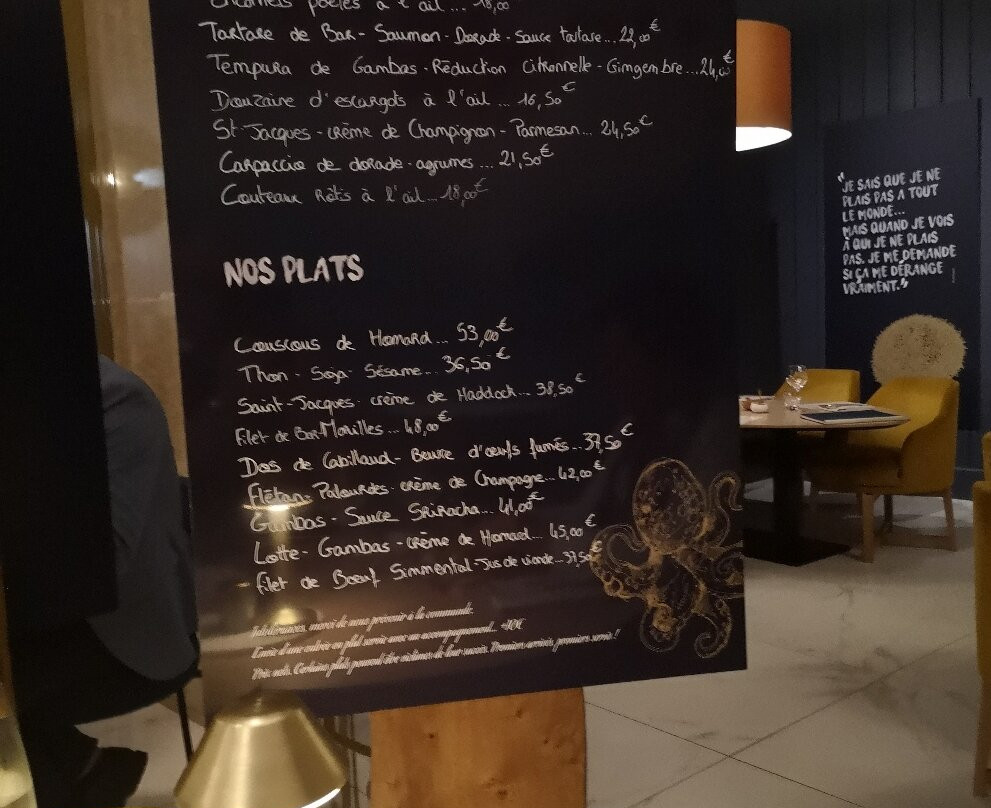 poêlés à l'ail... 18,00
Tartare de Bar - Saumon - Dorade - Sauce tartare... 22,00€
Tempura de Gambas - Réduction Citronnelle - Gingembre... 24,00€
Douzaine d'escargots à l'ail ... 16,50€
St-Jacques - crème de Champignon - Parmesan... 24,50€
Carpaccio de dorade - agrumes ... 21,50€
Couteaux Rôtis à l'ail... 18,00€
NOS PLATS
Couscous de Homard... 53,00€
Thon - Soja - Sésame... 36,50€
Saint-Jacques - crème de Haddock... 38,50€
Filet de Bar - Morilles... 48,00€
Dos de Cabillaud - Beurre d'œufs fumés... 37,50€
Flétan - Palourdes - crème de Champagne... 42,00€
Gambas - Sauce Sriracha... 41,00€
Lotte - Gambas - crème de Homard... 45,00€
- Filet de Bœuf Simmental - Jus de viande... 37,50€
Intolérances, merci de nous prévenir à la commande.
Envie d'une entrée en plat servie avec un accompagnement...
Prix nets. Certains plats peuvent être victimes de leur succès. Premiers arrivés, premiers servis !
"JE SAIS QUE JE NE
PLAIS PAS A TOUT
LE MONDE...
MAIS QUAND JE VOIS
À QUI JE NE PLAIS
PAS, JE ME DEMANDE
SI ÇA ME DÉRANGE
VRAIMENT."